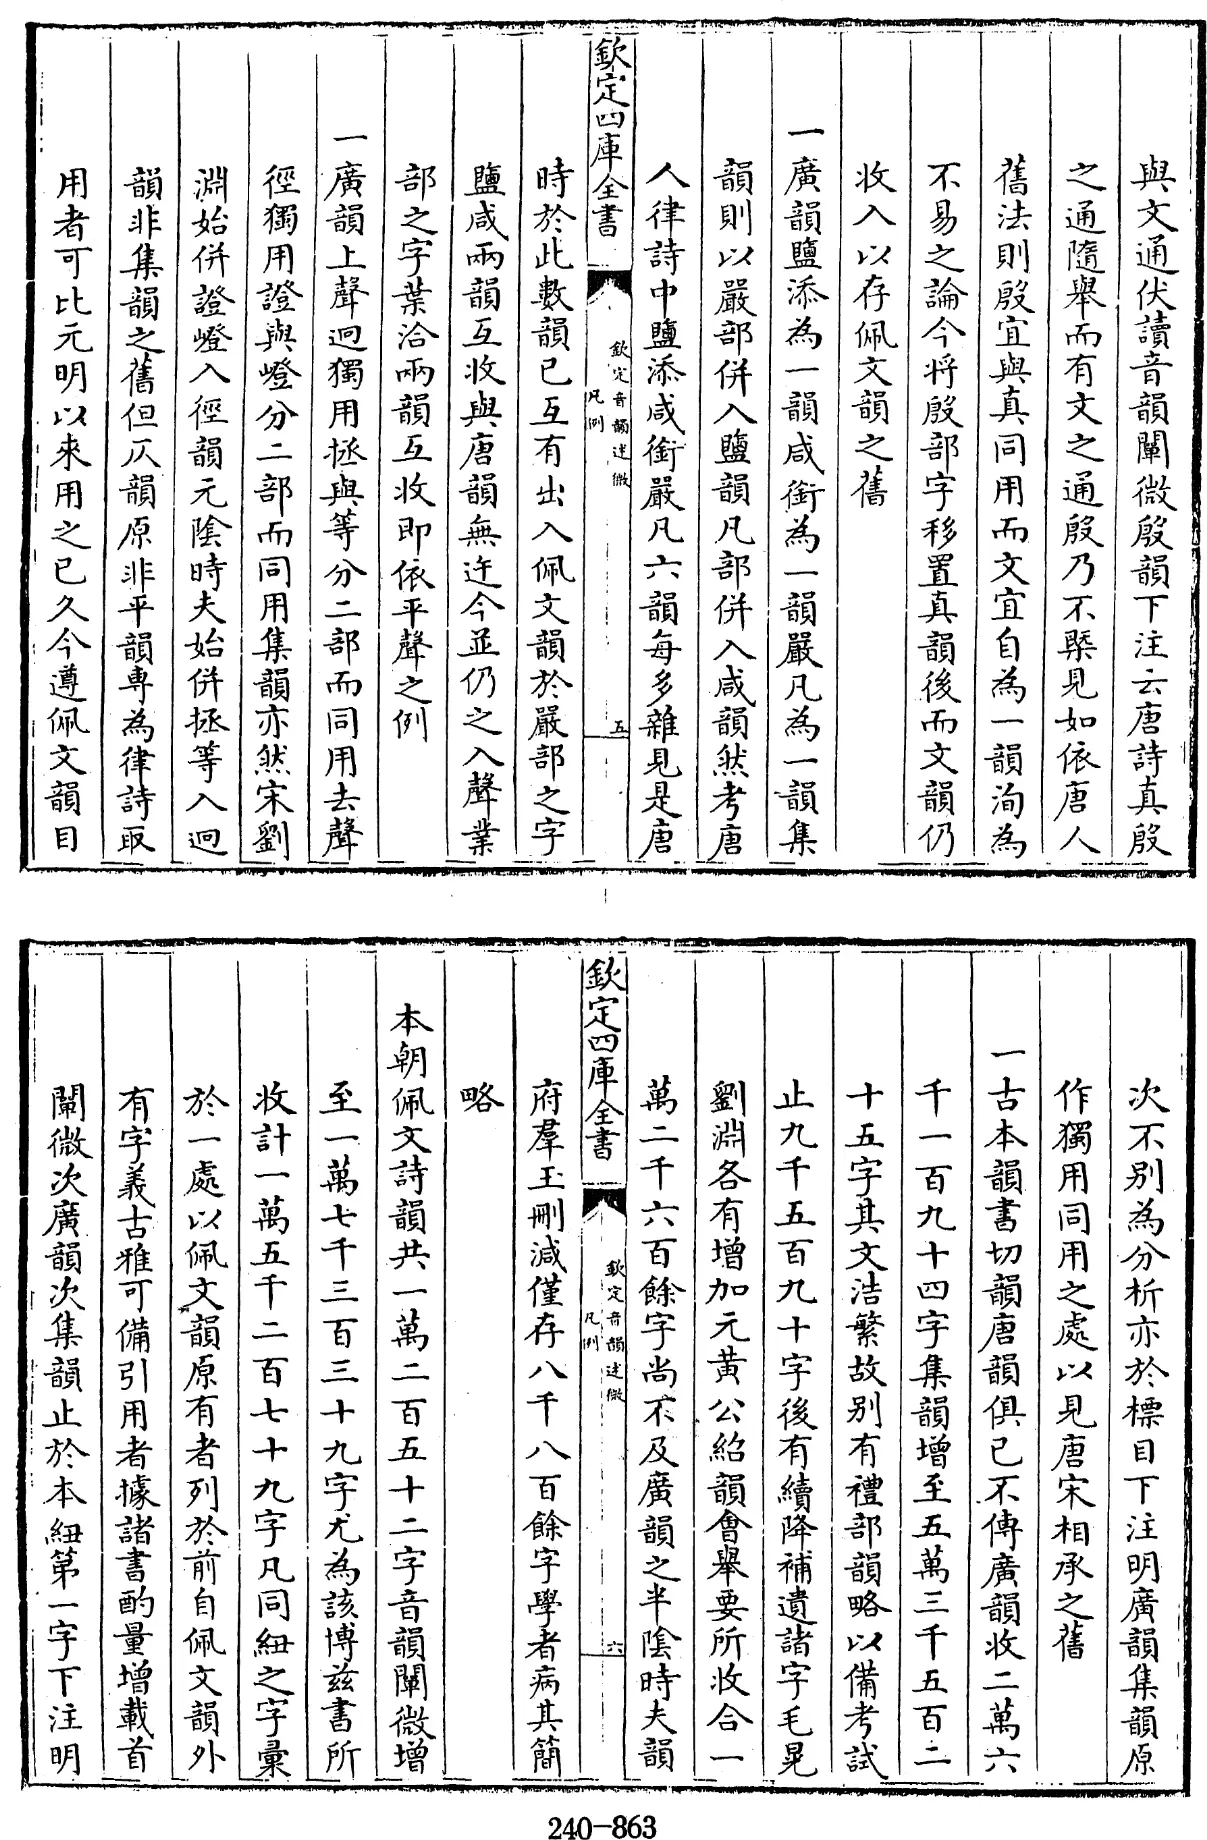 與文通伏讀音韻闡微殷韻下注云唐詩真殷
之通隨舉而有文之通殷乃不槩見如依唐人
舊法則殷宜與真同用而文宜自為一韻洵為
不易之論今將殷部字移置真韻後而文韻仍
收入以存佩文韻之舊
一廣韻鹽添為一韻咸銜為一韻嚴凡為一韻集
韻則以嚴部併入鹽韻凡部併入咸韻然考唐
人律詩中鹽添咸銜嚴凡六韻每多雜見是唐
欽定四庫全書
欽定音韻述微
凡例
五
時於此數韻已互有出入佩文韻於嚴部之字
鹽咸兩韻互收與唐韻無迕今並仍之入聲業
部之字葉洽兩韻互收即依平聲之例
一廣韻上聲迥獨用拯與等分二部而同用去聲
徑獨用證與嶝分二部而同用集韻亦然宋劉
淵始併證嶝入徑韻元陰時夫始併拯等入迥
韻非集韻之舊但仄韻原非平韻專為律詩取
用者可比元明以來用之已久今遵佩文韻目
次不別為分析亦於標目下注明廣韻集韻原
作獨用同用之處以見唐宋相承之舊
一古本韻書切韻唐韻俱已不傳廣韻收二萬六
千一百九十四字集韻增至五萬三千五百二
十五字其文浩繁故別有禮部韻略以備考試
止九千五百九十字後有續降補遺諸字毛晃
劉淵各有增加元黃公紹韻會舉要所收合一
萬二千六百餘字尚不及廣韻之半陰時夫韻
欽定四庫全書
欽定音韻述微
凡例
六
府羣玉刪減僅存八千八百餘字學者病其簡
略
本朝佩文詩韻共一萬二百五十二字音韻闡微增
至一萬七千三百三十九字尤為該博茲書所
收計一萬五千二百七十九字凡同紐之字彙
於一處以佩文韻原有者列於前自佩文韻外
有字義古雅可備引用者據諸書酌量增載首
闡微次廣韻次集韻止於本紐第一字下注明
240-863